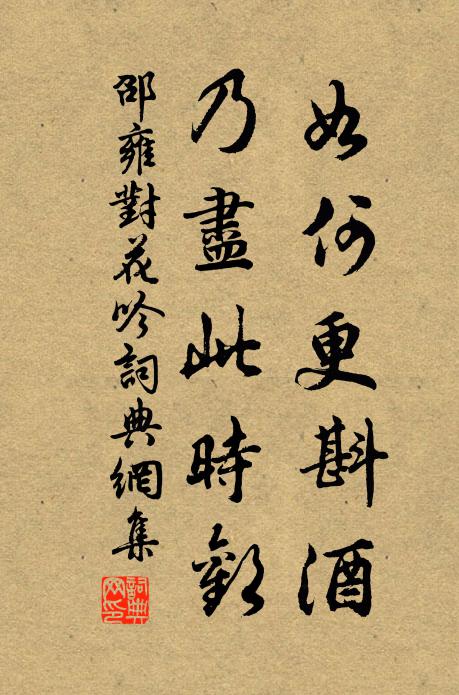 如何更斟酒
乃盡此時歡
邵雍對花吟詞典網集
詞典網印